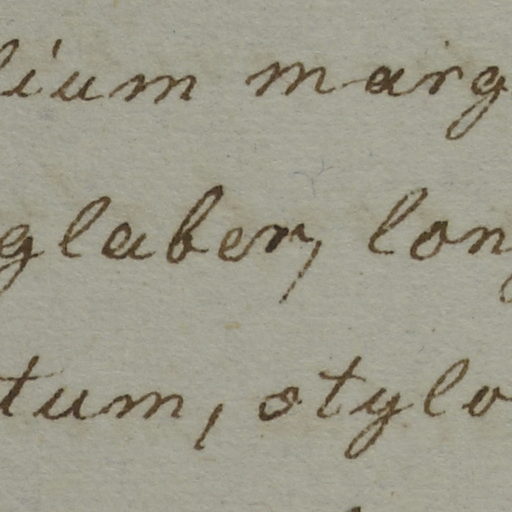 lium marg
glaber, lon
tum, stylo